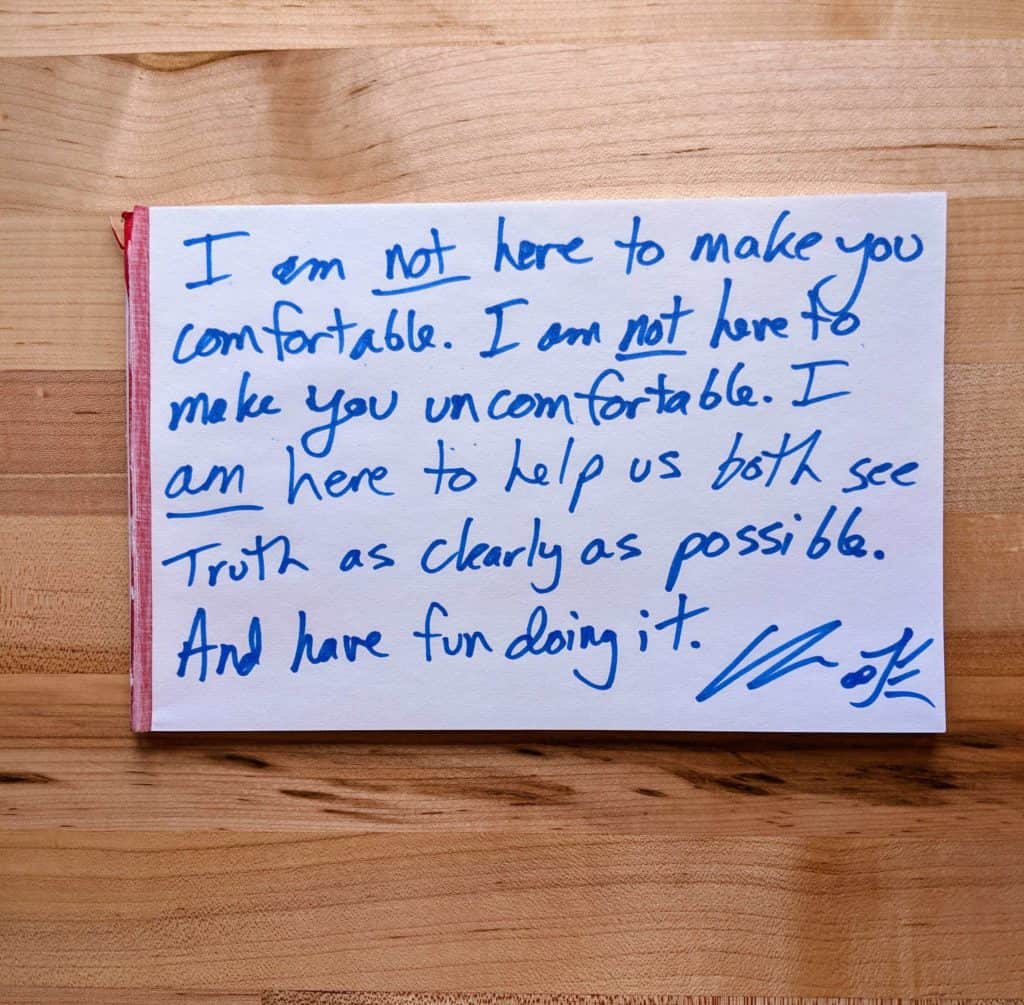 I am not here to make you
comfortable. I am not here to
make you uncomfortable. I
am here to help us both see
Truth as clearly as possible.
And have fun doing it.